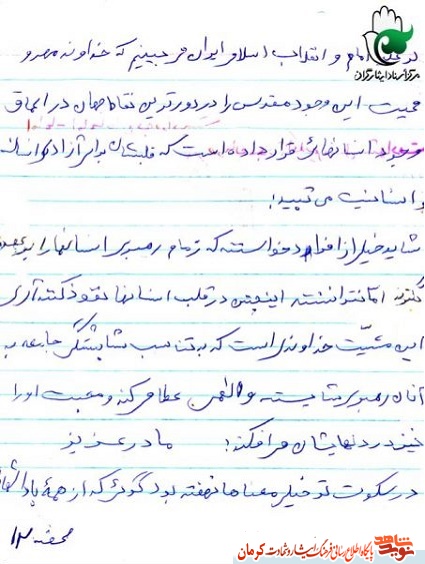 مرکز اسناد ایثارگران
امام و انقلاب اسلامی ایران می‌بینیم که خداوند مهر و
محبت این وجود مقدس را در دورترین نقاط جهان در اعماق
وجود انسانهائی قرار داده است که قلبشان برای آزادی و انسانیت
و انسانیت می تپید!
شاید خیلی از افراد میخواستند که زمام رهبری انسانها را
گیرند اما نتوانستند اینچنین در قلب انسانها نفوذ کنند آری
این مشیّت خداوندی است که به تناسب شایستگی جامعه به
آنان رهبری شایسته و الهی عطا می کند و محبت او را
نیز در دلهایشان می افکند! مادر عزیز
در سکوت تو خیلی معناها نهفته بود گوئی که از همهٔ
صفحه ۱۲
نوید شاهد
پایگاه اطلاع رسانی فرهنگ ایثار و شهادت کرمان